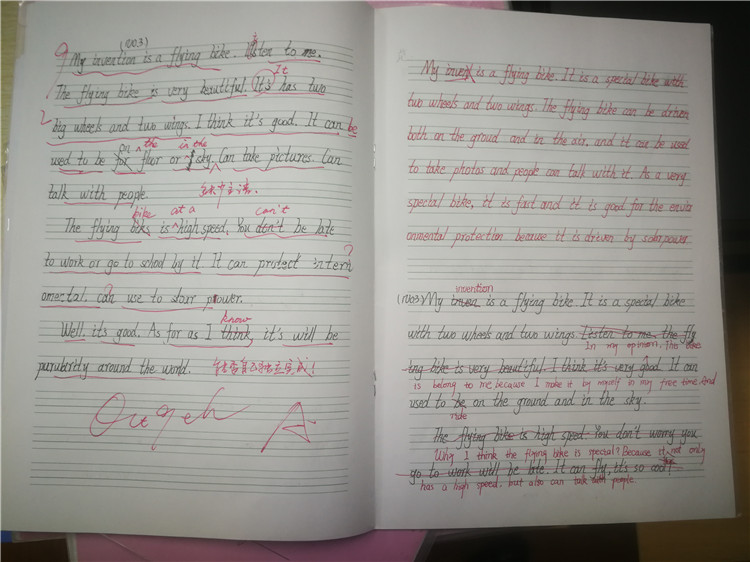 (NO.3)
My invention is a flying bike. Listen to me.
It
The flying bike is very beautiful. It's has two
big wheels and two wings. I think it's good. It can be
on the in the
used to be for fluor or sky. Can take pictures. Can
talk with people. 缺少主语.
bike at a can't
The flying bike is high speed. You don't be late
to work or go to school by it. It can protect intern
omental. can use to starr power.
know
Well, it's good. As for as I think, it's will be
purularity around the world.
A
My inven is a flying bike. It is a special bike with
two wheels and two wings. The flying bike can be driven
both on the groud and in the air, and it can be used
to take photos and people can talk with it. As a very
special bike, it is fast and it is good for the enviro
onmental protection because it is driven by solarpower.
invention
(NO3) My inven is a flying bike. It is a special bike
with two wheels and two wings. Listen to me. the fly
In my opinion, This bike
ing bike is very beautiful. I think it's very good. It can
is belong to me because I make it by myself in my free time. And
used to be on the ground and in the sky.
ride
The flying bike is high speed. You don't worry you
Why I think the flying bike is special? Because it not only
go to work will be late. It can fly, it's so cool!
has a high speed, but also can talk with people.